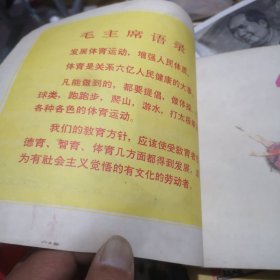 毛主席语录
发展体育运动，增强人民体质。
体育是关系六亿人民健康的大事
凡能做到的，都要提倡，做体操
球类，跑跑步，爬山，游水，打太极拳
各种各色的体育运动。
我们的教育方针，应该使受教育者
德育、智育、体育几方面都得到发展，
为有社会主义觉悟的有文化的劳动者。